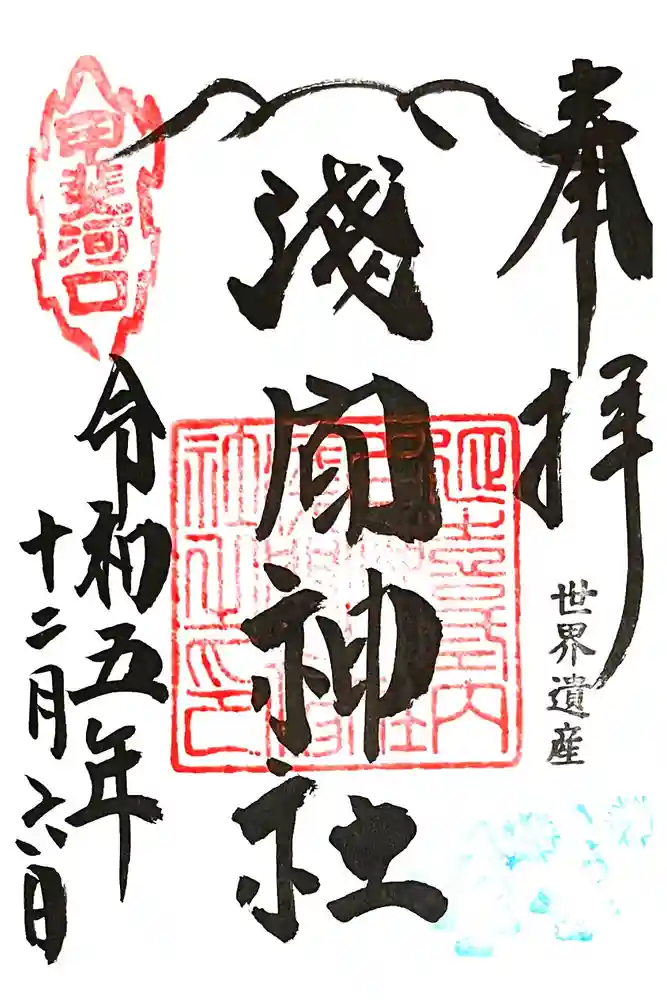 奉拝
世界遺産
淺間神社
甲斐河口
令和五年
十二月六日